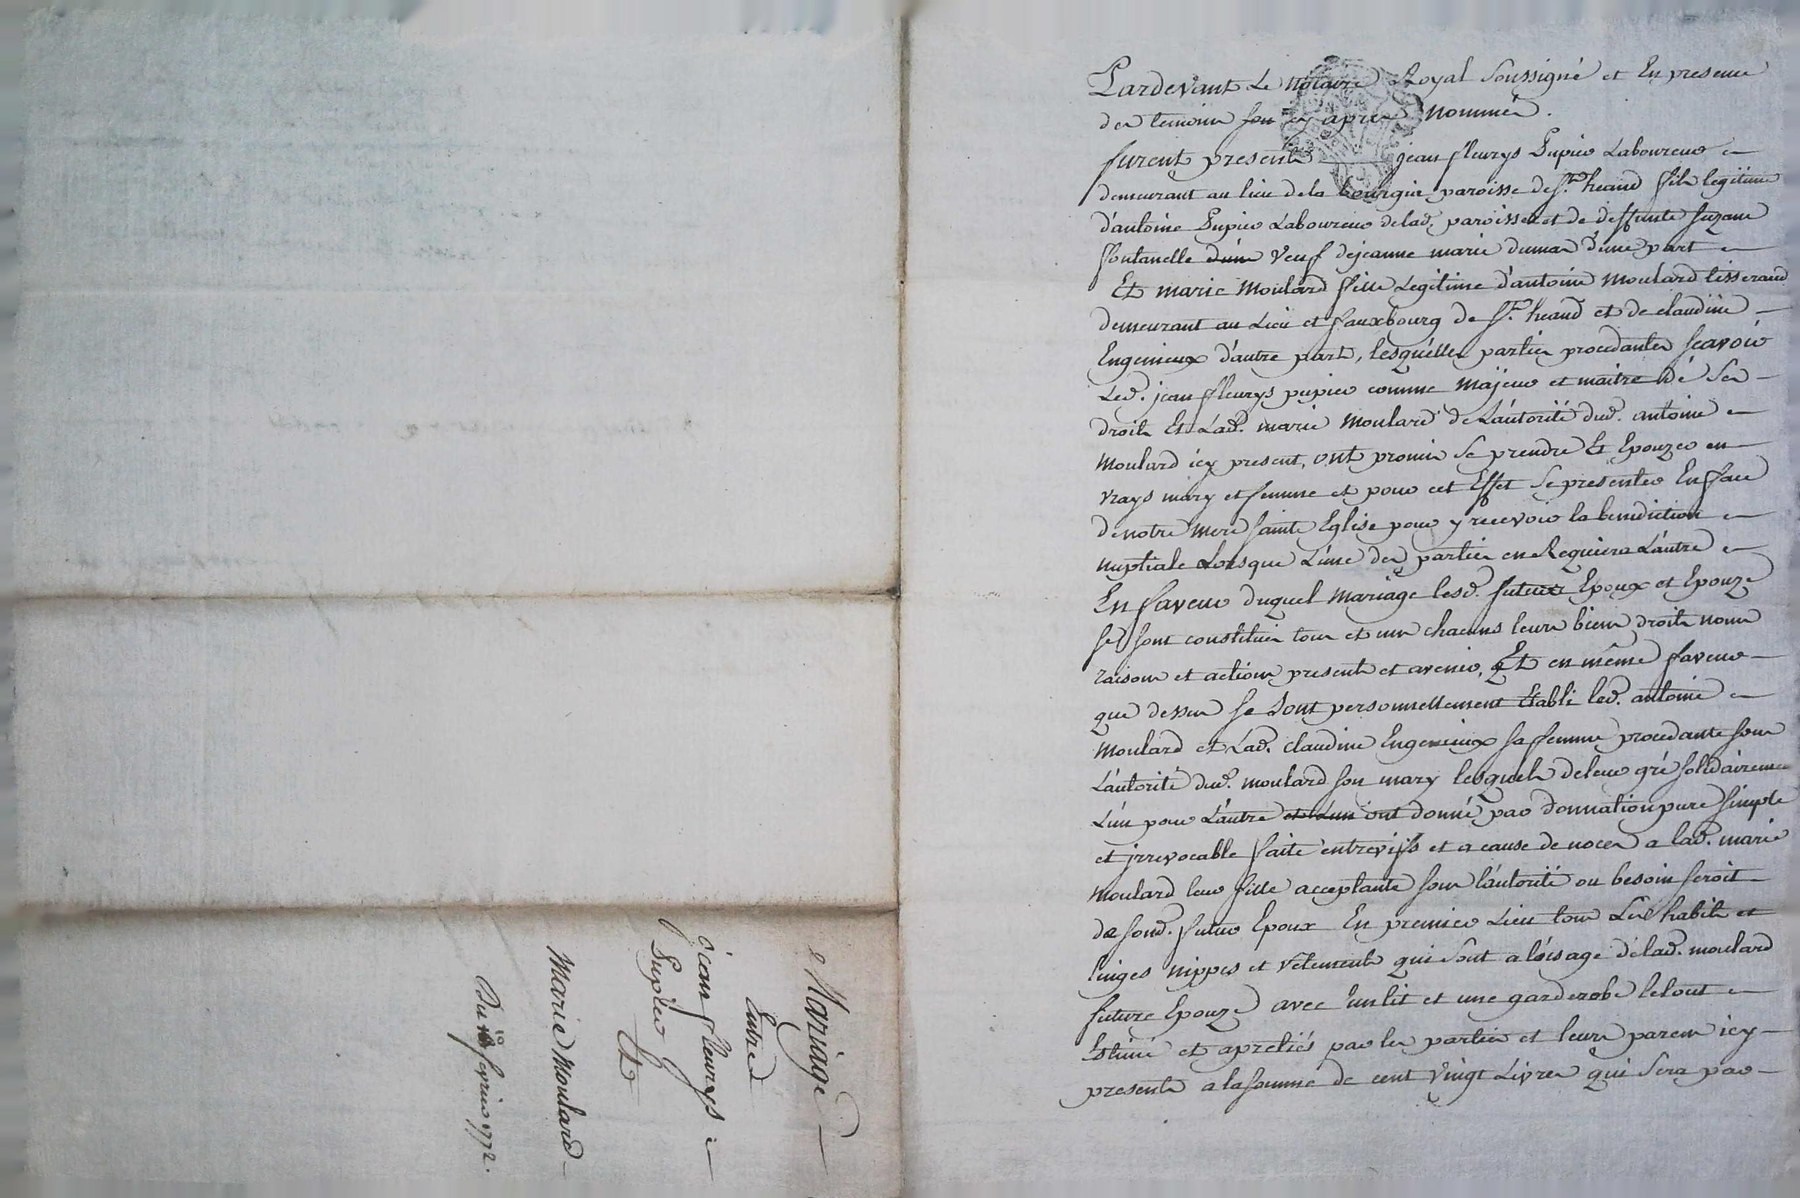 Mariage
Entre
jean fleurys
Pupier
Et
Marie Moulard
Du fevrier 1772.
Pardevant Le Notaire Royal Soussigné et En presence
des temoins sous cy apres Nommés.
furent presents jean fleurys Pupier Laboureur
demeurant au lieu dela bourgia paroisse de St. heand fils legitime
d'antoine Pupier Laboureur delad. paroisse et de deffunte suzane
fontanelle d'une veuf dejeanne marie dumas d'une part
Et marie Moulard fille Legitime d'antoine Moulard tisserand
demeurant au Lieu et fauxbourg de St. heand et de claudine
Engenieux d'autre part, lesquelles parties procedantes scavoir
Led. jean fleurys pupier comme Majeur et maitre de Ses
droits Et Lad. marie Moulard de L'autorité dud. antoine
Moulard icy present, ont promis Se prendre Et Epouzer en
vrays mary et femme et pour cet Effet Se presenter En face
denotre mere sainte Eglise pour y recevoir la benediction
nuptiale Lorsque L'une des parties en Requiera L'autre
En faveur duquel Mariage lesd. futurs Epoux et Epouze
se sont constitués tous et un chacuns leurs biens droits noms
raisons et actions presents et avenir, Et en même faveur
que dessus se sont personnellement Etabli led. antoine
Moulard et Lad. claudine Engenieux sa femme procedante sous
L'autorité dud. moulard son mary lesquels deleur gré solidairement
L'un pour L'autre et L'un ont donné par donnation pure simple
et jrrevocable faite entrevifs et a cause de noces a lad. marie
Moulard leur fille acceptante sous l'autorité ou besoin seroit
de sond. futur Epoux En premier Lieu tous Les habits et
linges nippes et vêtements qui sont a l'usage delad. moulard
future Epouze avec un lit et une garderobe letout
Estimé et apretiés par les parties et leurs parens icy
presents a lasomme de cent vingt Livres qui Sera par